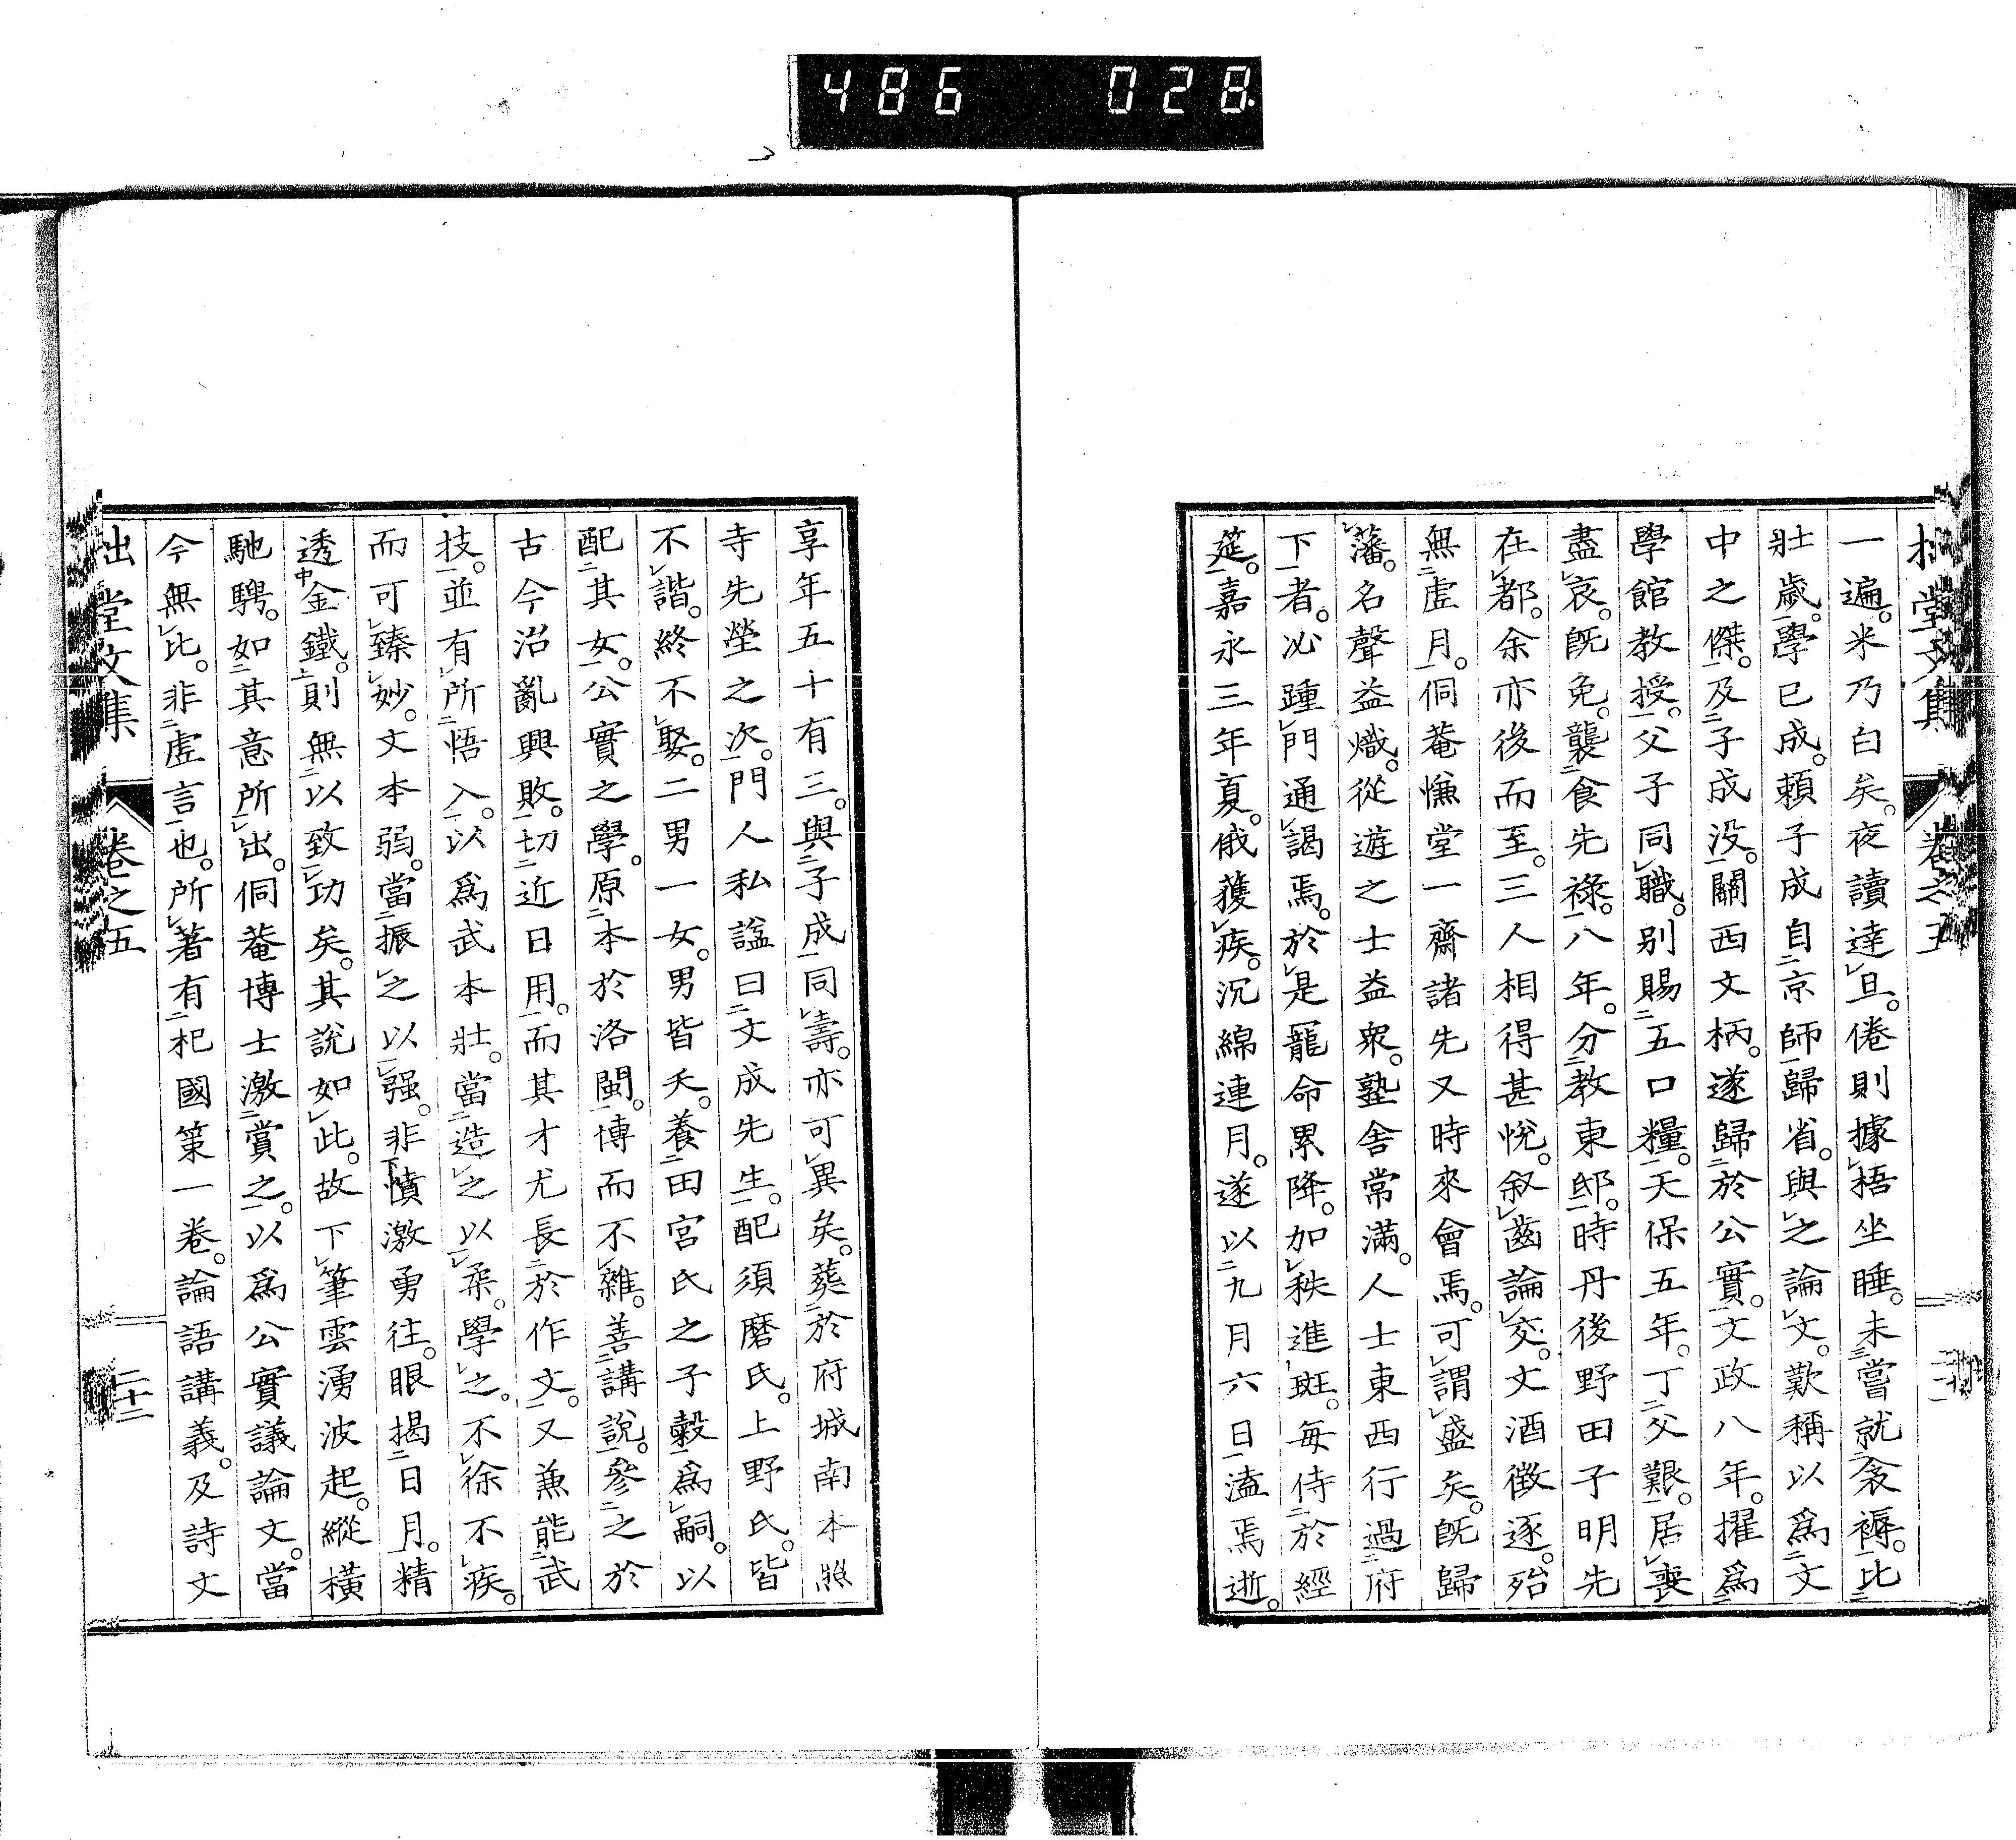 486 028
一遍。米乃白矣。夜讀達旦。倦則據梧坐睡。未嘗就衾褥。比
壯歲。學已成。頼子成自京師歸省。與之論文。歎稱以爲文
中之傑。及子成没。關西文柄。遂歸於公實。文政八年。擢爲
學館教授。父子同職。別賜五口糧。天保五年。丁父艱。居喪
盡哀。既免。襲食先祿。八年。分教東邸。時丹後野田子明先
在都。余亦後而至。三人相得甚悅。叙齒論交。文酒徴逐。殆
無虚月。侗菴慊堂一齋諸先又時來會焉。可謂盛矣。既歸
藩。名聲益熾。從遊之士益衆。塾舎常滿。人士東西行過府
下者。必踵門通謁焉。於是寵命累降。加秩進班。毎侍於經
筵。嘉永三年夏。俄獲疾。沉綿連月。遂以九月六日溘焉逝。
享年五十有三。與子成同壽。亦可異矣。葬於府城南本照
寺先塋之次。門人私諡曰文成先生。配須磨氏。上野氏。皆
不諧。終不娶。二男一女。男皆夭。養田宮氏之子穀爲嗣。以
配其女。公實之學。原本於洛閩。博而不雜。善講説。參之於
古今治亂興敗。切近日用。而其才尤長於作文。又兼能武
技。並有所悟入。以爲武本壯。當造之以柔。學之。不徐不疾。
而可臻妙。文本弱。當振之以强。非憤激勇往。眼揭日月。精
透金鐵。則無以致功矣。其説如此。故下筆雲湧波起。縱橫
馳騁。如其意所出。侗菴博士激賞之。以爲公實議論文。當
今無比。非虚言也。所著有杞國策一卷。論語講義。及詩文
堂文集 卷之五 二十二